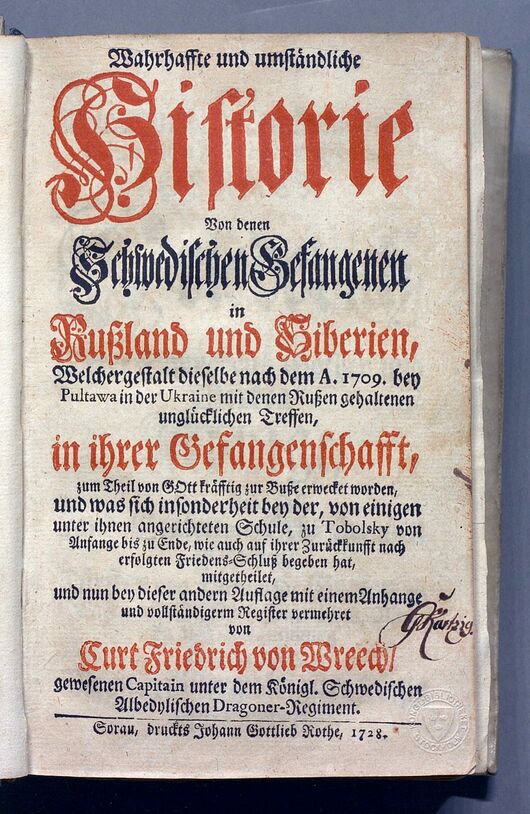 Wahrhaffte und umständliche
Historie
Von denen
Schwedischen Gefangenen
in
Rußland und Siberien,
Welchergestalt dieselbe nach dem A. 1709. bey
Pultawa in der Ukraine mit denen Rußen gehaltenen
unglücklichen Treffen,
in ihrer Gefangenschafft,
zum Theil von GOtt kräfftig zur Buße erwecket worden,
und was sich insonderheit bey der, von einigen
unter ihnen angerichteten Schule, zu Tobolsky von
Anfange bis zu Ende, wie auch auf ihrer Zurückkunfft nach
erfolgten Friedens-Schluß begeben hat,
mitgetheilet,
und nun bey dieser andern Auflage mit einem Anhange
und vollständigerm Register vermehret
von
Curt Friedrich von Wreech/
gewesenen Capitain unter dem Königl. Schwedischen
Albedylischen Dragoner-Regiment.
Sorau, druckts Johann Gottlieb Rothe, 1728.